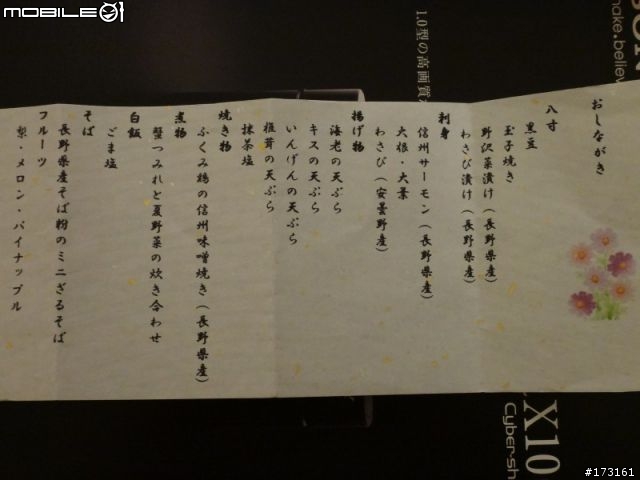 MOBILE01
おしながき
八寸
黒豆
玉子焼き
野沢菜漬け(長野県産)
わさび漬け(長野県産)
刺身
信州サーモン(長野県産)
大根・大葉
わさび(安曇野産)
揚げ物
海老の天ぷら
キスの天ぷら
いんげんの天ぷら
椎茸の天ぷら
抹茶塩
焼き物
ふくみ鶏の信州味噌焼き(長野県産)
煮物
蟹つみれと夏野菜の炊き合わせ
白飯
ごま塩
そば
長野県産そば粉のミニざるそば
フルーツ
梨・メロン・パイナップル
1.0型の高画質
make.believe
X10
Cyber-sh
#173161